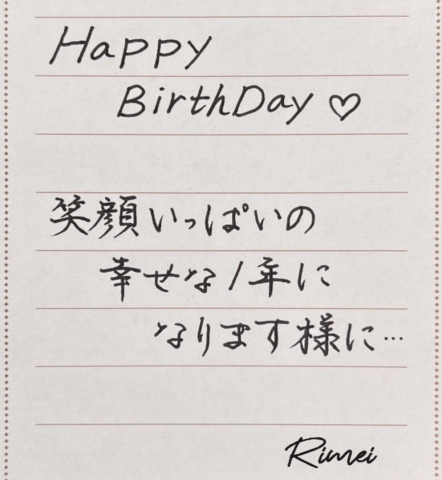 Happy
BirthDay♡
笑顔いっぱいの
幸せな1年に
なります様に…
Rimei